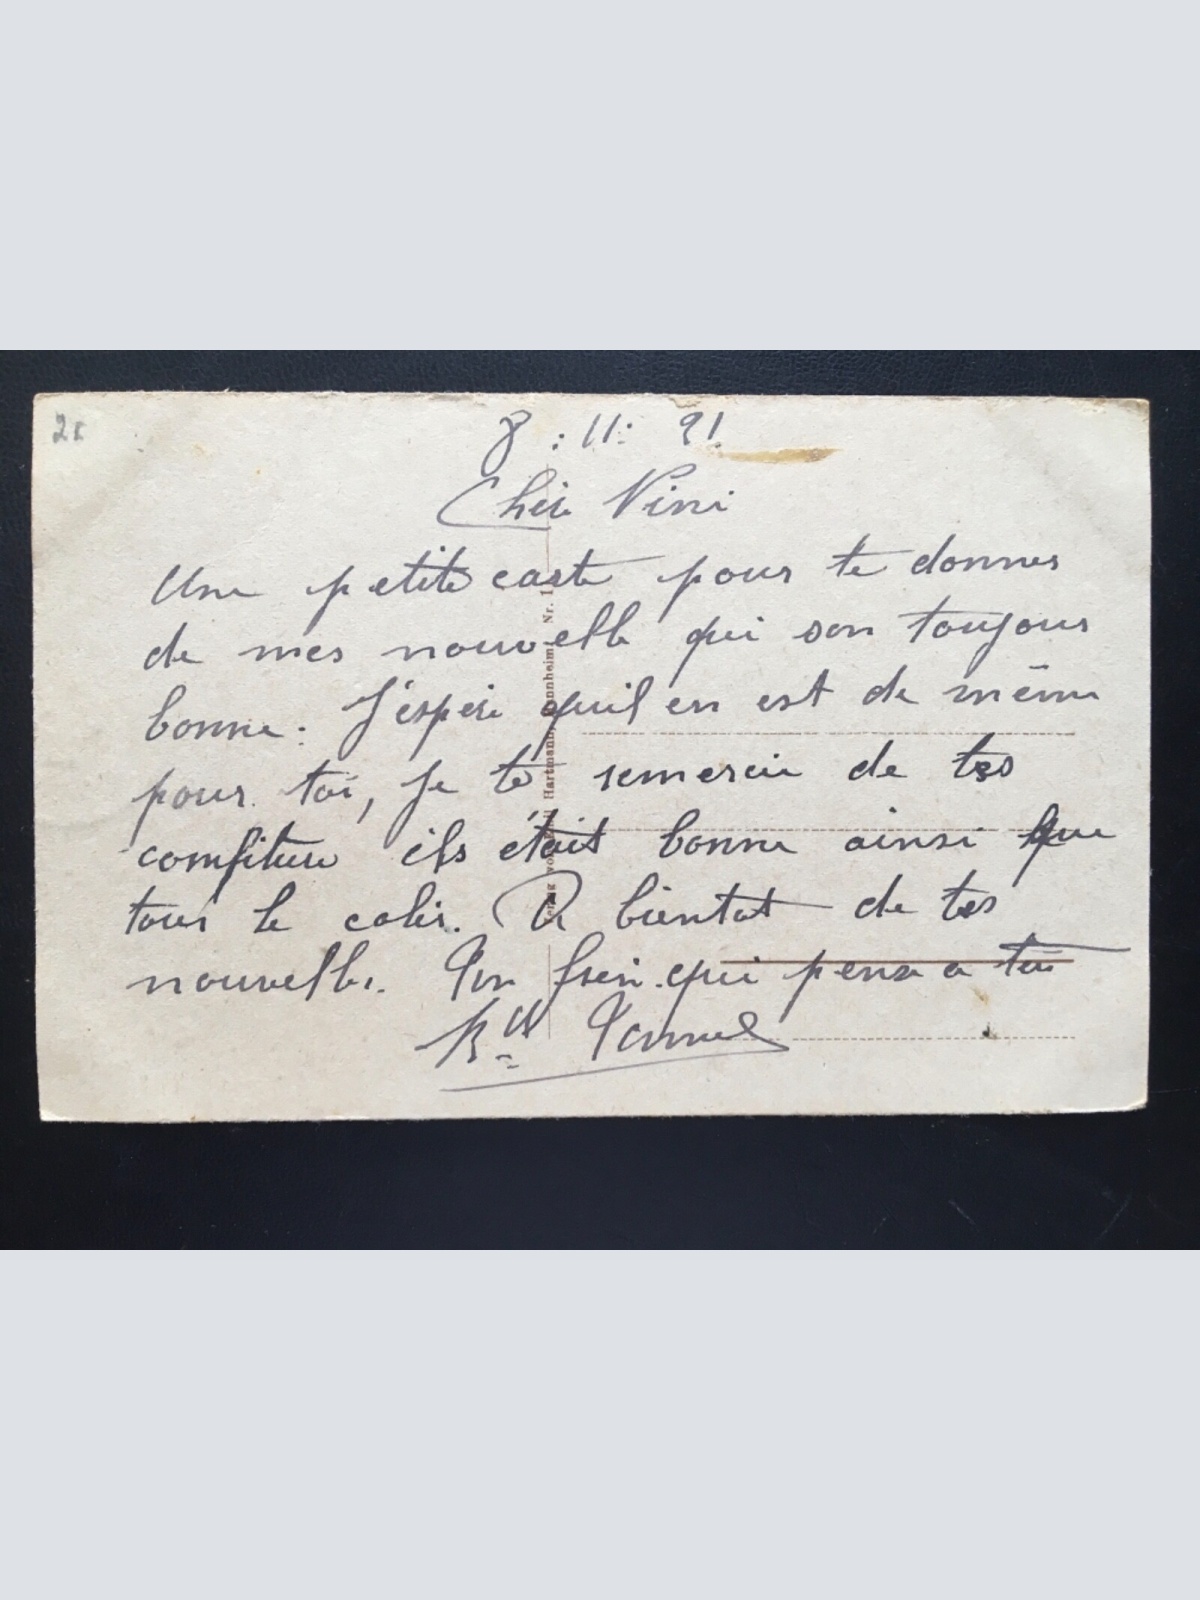 8 : 11 : 21
Cher Nini
Une petite carte pour te donner
de mes nouvelle qui son toujours
bonne. J'éspère quil en est de même
pour toi, Je te remercie de tes
comfiture ils était bonne ainsi que
tous le colis. A bientot de tes
nouvelles. Ton frère qui pense a toi
Hartmann, Nr. 1